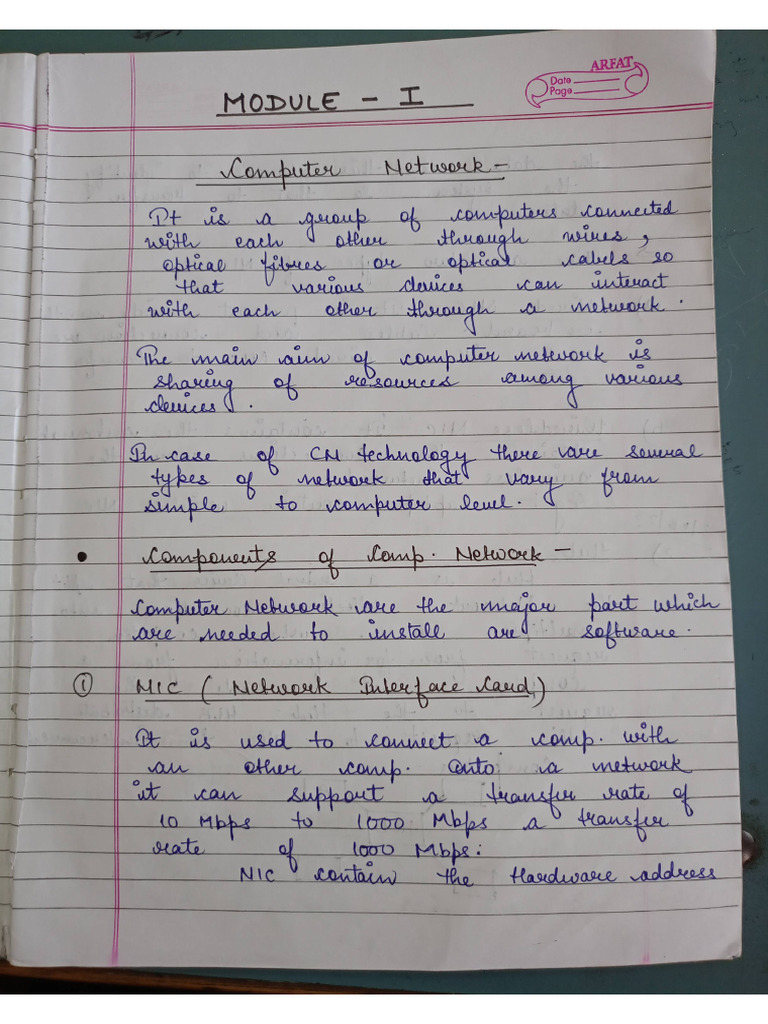 ARFAT
Date
Page
MODULE - I
Computer Network -
It is a group of computers connected
with each other through wires,
optical fibres or optical cabels so
that various devices can interact
with each other through a network.
The main aim of computer network is
sharing of resources among various
devices.
In case of CN technology there are several
types of network that vary from
simple to computer level.
• Components of Comp. Network -
Computer Network are the major part which
are needed to install are software.
① NIC ( Network Interface Card )
It is used to connect a comp. with
an other comp. onto a network
it can support a transfer rate of
10 Mbps to 1000 Mbps a transfer
rate of 1000 Mbps:
NIC contain the Hardware address